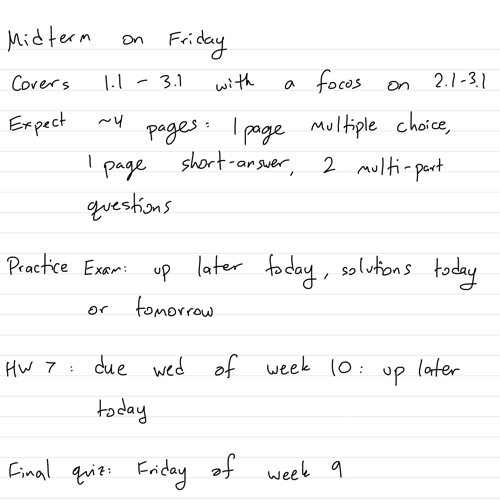 Midterm on Friday
Covers 1.1 - 3.1 with a focus on 2.1-3.1
Expect ~4 pages: 1 page multiple choice,
1 page short-answer, 2 multi-part
questions
Practice Exam: up later today, solutions today
or tomorrow
HW 7: due wed of week 10: up later
today
Final quiz: Friday of week 9